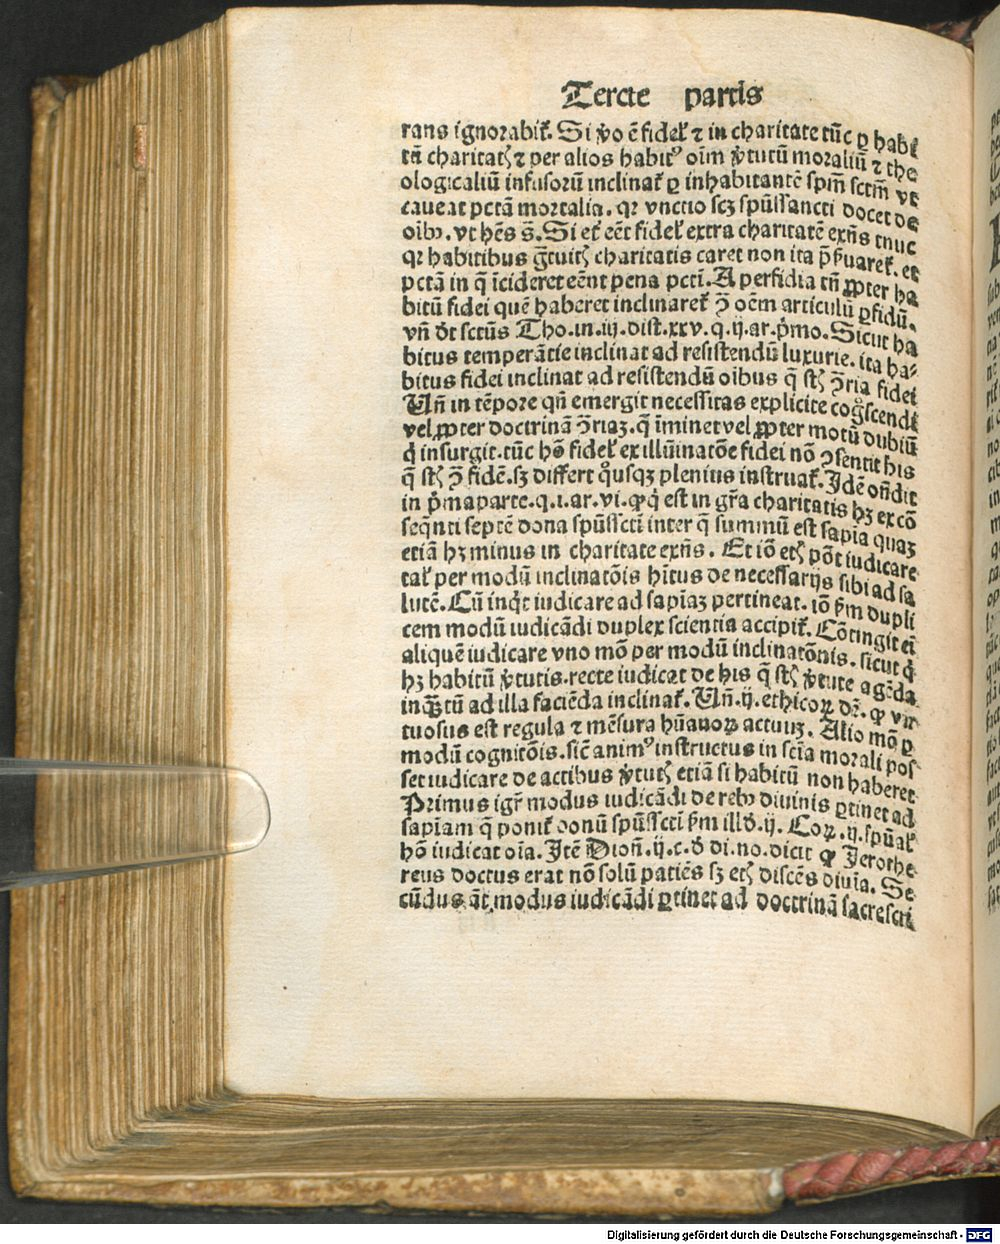 Tercie partis
rans ignorabit᷑. Si v̾o ē fidel᷑ ⁊ in charitate tūc ꝑ habi
tū charitatꝭ ⁊ per alios habitꝰ oīm v̾tutū moraliū ⁊ the
ologicaliū infusorū inclinat᷑ ꝑ inhabitantē spm̄ sctm̄ vt
caueat pctā mortalia. qꝛ vnctio scꝫ spūssancti docet de
oībꝰ. vt hēs s̄. Si et᷑ eēt fidel᷑ extra charitatē exn̄s tnuc
qꝛ habitibus gͣtuitꝭ charitatis caret non ita p̄ſ̾uaret᷑. et
pctā in q̄ īcideret eēnt pena pcti. A perfidia tn̄ ꝓpter ha
bitū fidei quē haberet inclinaret᷑ ↄ̄ oēm articulū ꝑfidū.
vn̄ dt̄ sctūs Tho. in. iij. dist. xxv. q. ij. ar. pͥmo. Sicut ha
bitus temperātie inclinat ad resistendū luxurie. ita ha⸗
bitus fidei inclinat ad resistendū oībus q̄ st̄ ↄ̄ria fidei
Vn̄ in tēpore qn̄ emergit necessitas explicite cogͦscendi
vel ꝓpter doctrinā ↄ̄riaꝫ. q̄ īminet vel ꝓpter motū dubiū
qͥ insurgit. tūc hō fidel᷑ ex illūinatōe fidei nō ↄsentit his
q̄ st̄ ↄ̄ fidē. sꝫ differt qͦusqꝫ plenius instruat᷑. Idē on̄dit
in pͥma parte. q. i. ar. vi. ꝙ qͥ est in gr̄a charitatis hꝫ ex cō
seq̄nti septē dona spūsscti inter q̄ summū est sapīa quaꝫ
etiā hꝫ minus in charitate exn̄s. Et iō etꝭ pōt iudicare
tal᷑ per modū inclinatōis hītus de necessarijs sibi ad sa
lutē. Cū inqͥt iudicare ad sapīaꝫ pertineat. iō ẜm dupli
cem modū iudicādi duplex scientia accipit᷑. Cōtingit eī
aliquē iudicare vno mō per modū inclinatōnis. sicut qͥ
hꝫ habitū v̾tutis. recte iudicat de his q̄ st̄ v̾tute agēda
inqͣꝫtū ad illa faciēda inclinat᷑. Vn̄. ij. ethicoꝝ dꝛ. ꝙ vir
tuosus est regula ⁊ mēsura hūanoꝝ actuuꝫ. Alio mō ꝑ
modū cognitōis. sic̄ animꝰ instructus in scīa morali pos
set iudicare de actibus v̾tutꝭ etiā si habitū non haberet
Primus igr̄ modus iudicādi de rebꝰ diuinis ꝑtinet ad
sapīam q̄ ponit᷑ donū spūsscti ẜm illd̄. ij. Coꝝ. ij. spūal᷑
hō iudicat oīa. Itē Dion̄. ij. c. d̄ di. no. dicit ꝙ Jerothe⸗
reus doctus erat nō solū patiēs sꝫ etꝭ discēs diuīa. Se
cūdus āt modus iudicādi ꝑtinet ad doctrinā sacre scri
Digitalisierung gefördert durch die Deutsche Forschungsgemeinschaft - DFG